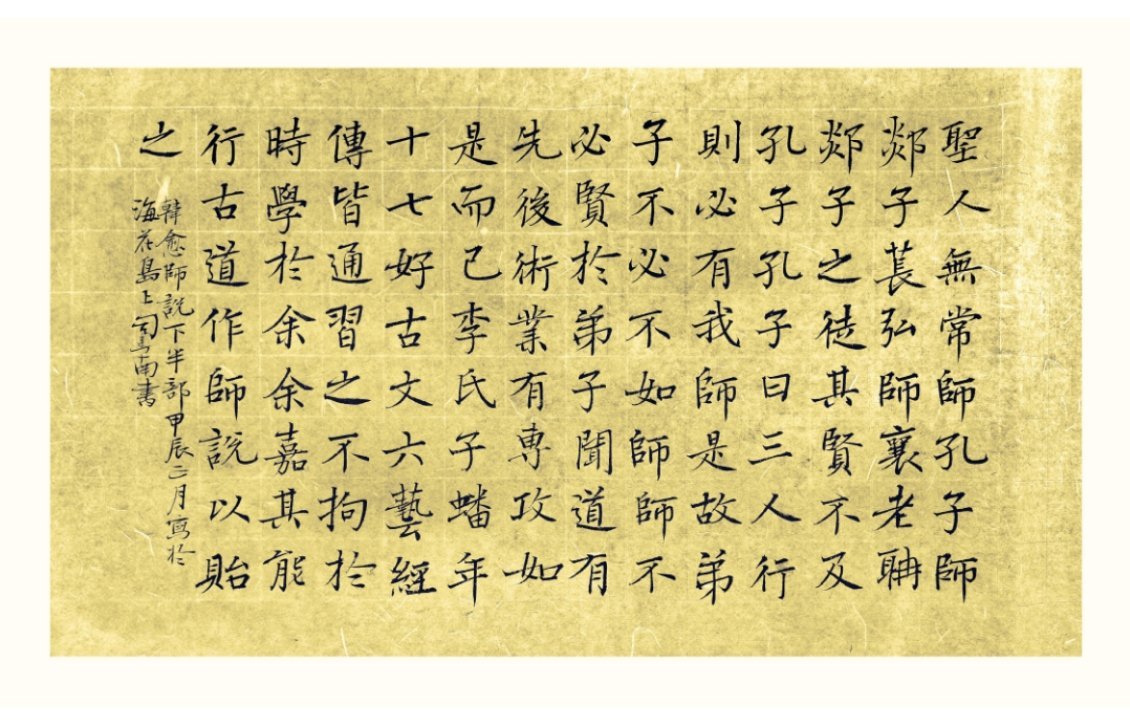 聖人無常師孔子師
郯子萇弘師襄老聃
郯子之徒其賢不及
孔子孔子曰三人行
則必有我師是故弟
子不必不如師師不
必賢於弟子聞道有
先後術業有專攻如
是而已李氏子蟠年
十七好古文六藝經
傳皆通習之不拘於
時學於余余嘉其能
行古道作師說以貽
之
韓愈師說下半部甲辰三月寫於
海花島上司馬南書